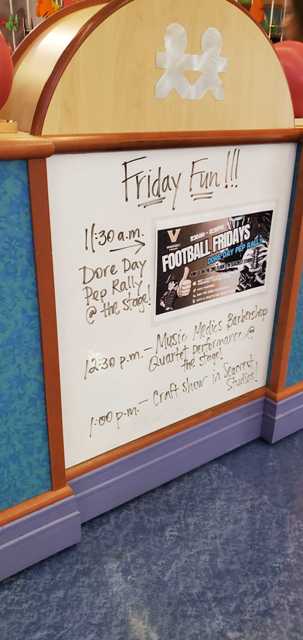 Friday Fun!!!
11:30 a.m.
Dore Day
Pep Rally
@ the stage!
V
FOOTBALL FRIDAYS
DORE DAY PEP RALLY
12:30 p.m. - Music Medics Barbershop
Quartet performance @
the stage!
1:00 p.m. - Craft Show in Seacrest
Studios!